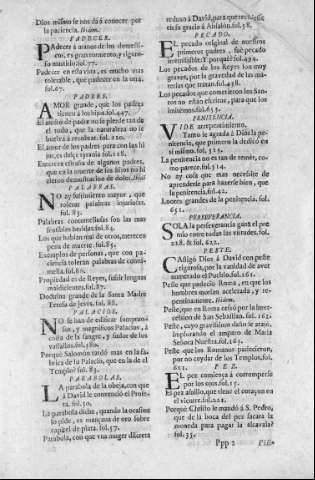 Dios mismo se nos dá à conocer por
la paciencia. Ibidem.
PADECER.
Padecer à manos de los domesticos,
es gran tormento, y riguroso
martirio. fol.77.
Padecer en esta vida, es mucho mas
tolerable, que padecer en la otra.
fol.67.
PADRES.
AMOR grande, que los padres
tienen à los hijos. fol.447.
El amor de padre no se pierde tan de
el todo, que la naturaleza no se
buelva à recobrar. fol.120.
El amor de los padres para con los hijos,
es tirania fol.128.
de algunos padres,
que en la muerte de sus hijos no hizieron
demonstracion de dolor. Ibid
PALABRAS.
NO ay sufrimiento mayor, que
tolerar palabras injuriosas.
fol. 83.
Palabras contumeliosas son las mas
sensibles heridas. fol.83.
Los que hablan mal de otros, merecen
pena de muerte. fol.85.
Exemplos de personas, que con paciencia
toleran palabras de contumelia.
fol.86.
Propiedad es de Reyes, sufrir lenguas
maldicientes. fol.87.
Doctrina grande de la Santa Madre
Teresa de Jesus. fol.88.
PALACIOS.
NO se han de edificar sumptuosos,
y magnificos Palacios, à
costa de la sangre, y sudor de los
vassallos. fol.180.
Porquè Salomòn tardò mas en la fabrica
de su Palacio, que en la de el
Templo? fol.83.
PARABOLAS.
LA parabola de la oveja, con que
à David le convenciò el Profeta.
fol.50.
La parabola dicha, quando la ocasion
lo pide, es mançana de oro sobre
capa de plata. fol.57.
Parabola, con que vna muger discreta
reduxo à David, para que
en su gracia à Absalòn. fol.458.
PECADO.
EL pecado original de nuestros
primeros padres, fue pecado
irremissible: Y porquè? fol.434.
Los pecados de los Reyes son muy
graves, por la gravedad de las materias
que tratan. fol.438.
Los pecados que cometieron los Santos
no estàn escritos, para que los
imitemos. fol.455.
PENITENCIA.
VIDE arrepentimiento.
Tanto le agrada à Dios la penitencia,
que primero la dedicò en
si mismo. fol. 513.
La penitencia no es tan de temer, como
parece. fol.514.
No ay cosa que mas necessite de
aprenderse para hazerse bien, que
la penitencia. fol.42.
Loores grandes de la penitencia. fol.
652.
PERSEVERANCIA.
SOLA la perseverancia ganò el premio
entre todas las virtudes. fol.
228. & fol. 622.
PESTE.
CAstigò Dios à David con peste
rigurosa, por la vanidad de aver
numerado el Pueblo. fol.261.
Peste que padeciò Roma, en que los
hombres morian acelerada, y repentinamente.
Ibidem.
Peste, que en Roma cessò por la intercession
de San Sebastian. fol. 262.
Peste, cuyo gravissimo daño se atajò,
implorando el amparo de Maria
Señora Nuestra. fol.263.
Peste que los Romanos padecieron,
por no cuydar de los Templos. fol.
622.
PEZ.
EL pez comiença à corromperse
por los ojos. fol.17.
fol.221.
Porque Christo le mandò à S. Pedro,
que de la boca del pez sacara la
moneda para pagar la alcavala?
fol.35.
Ppp 2